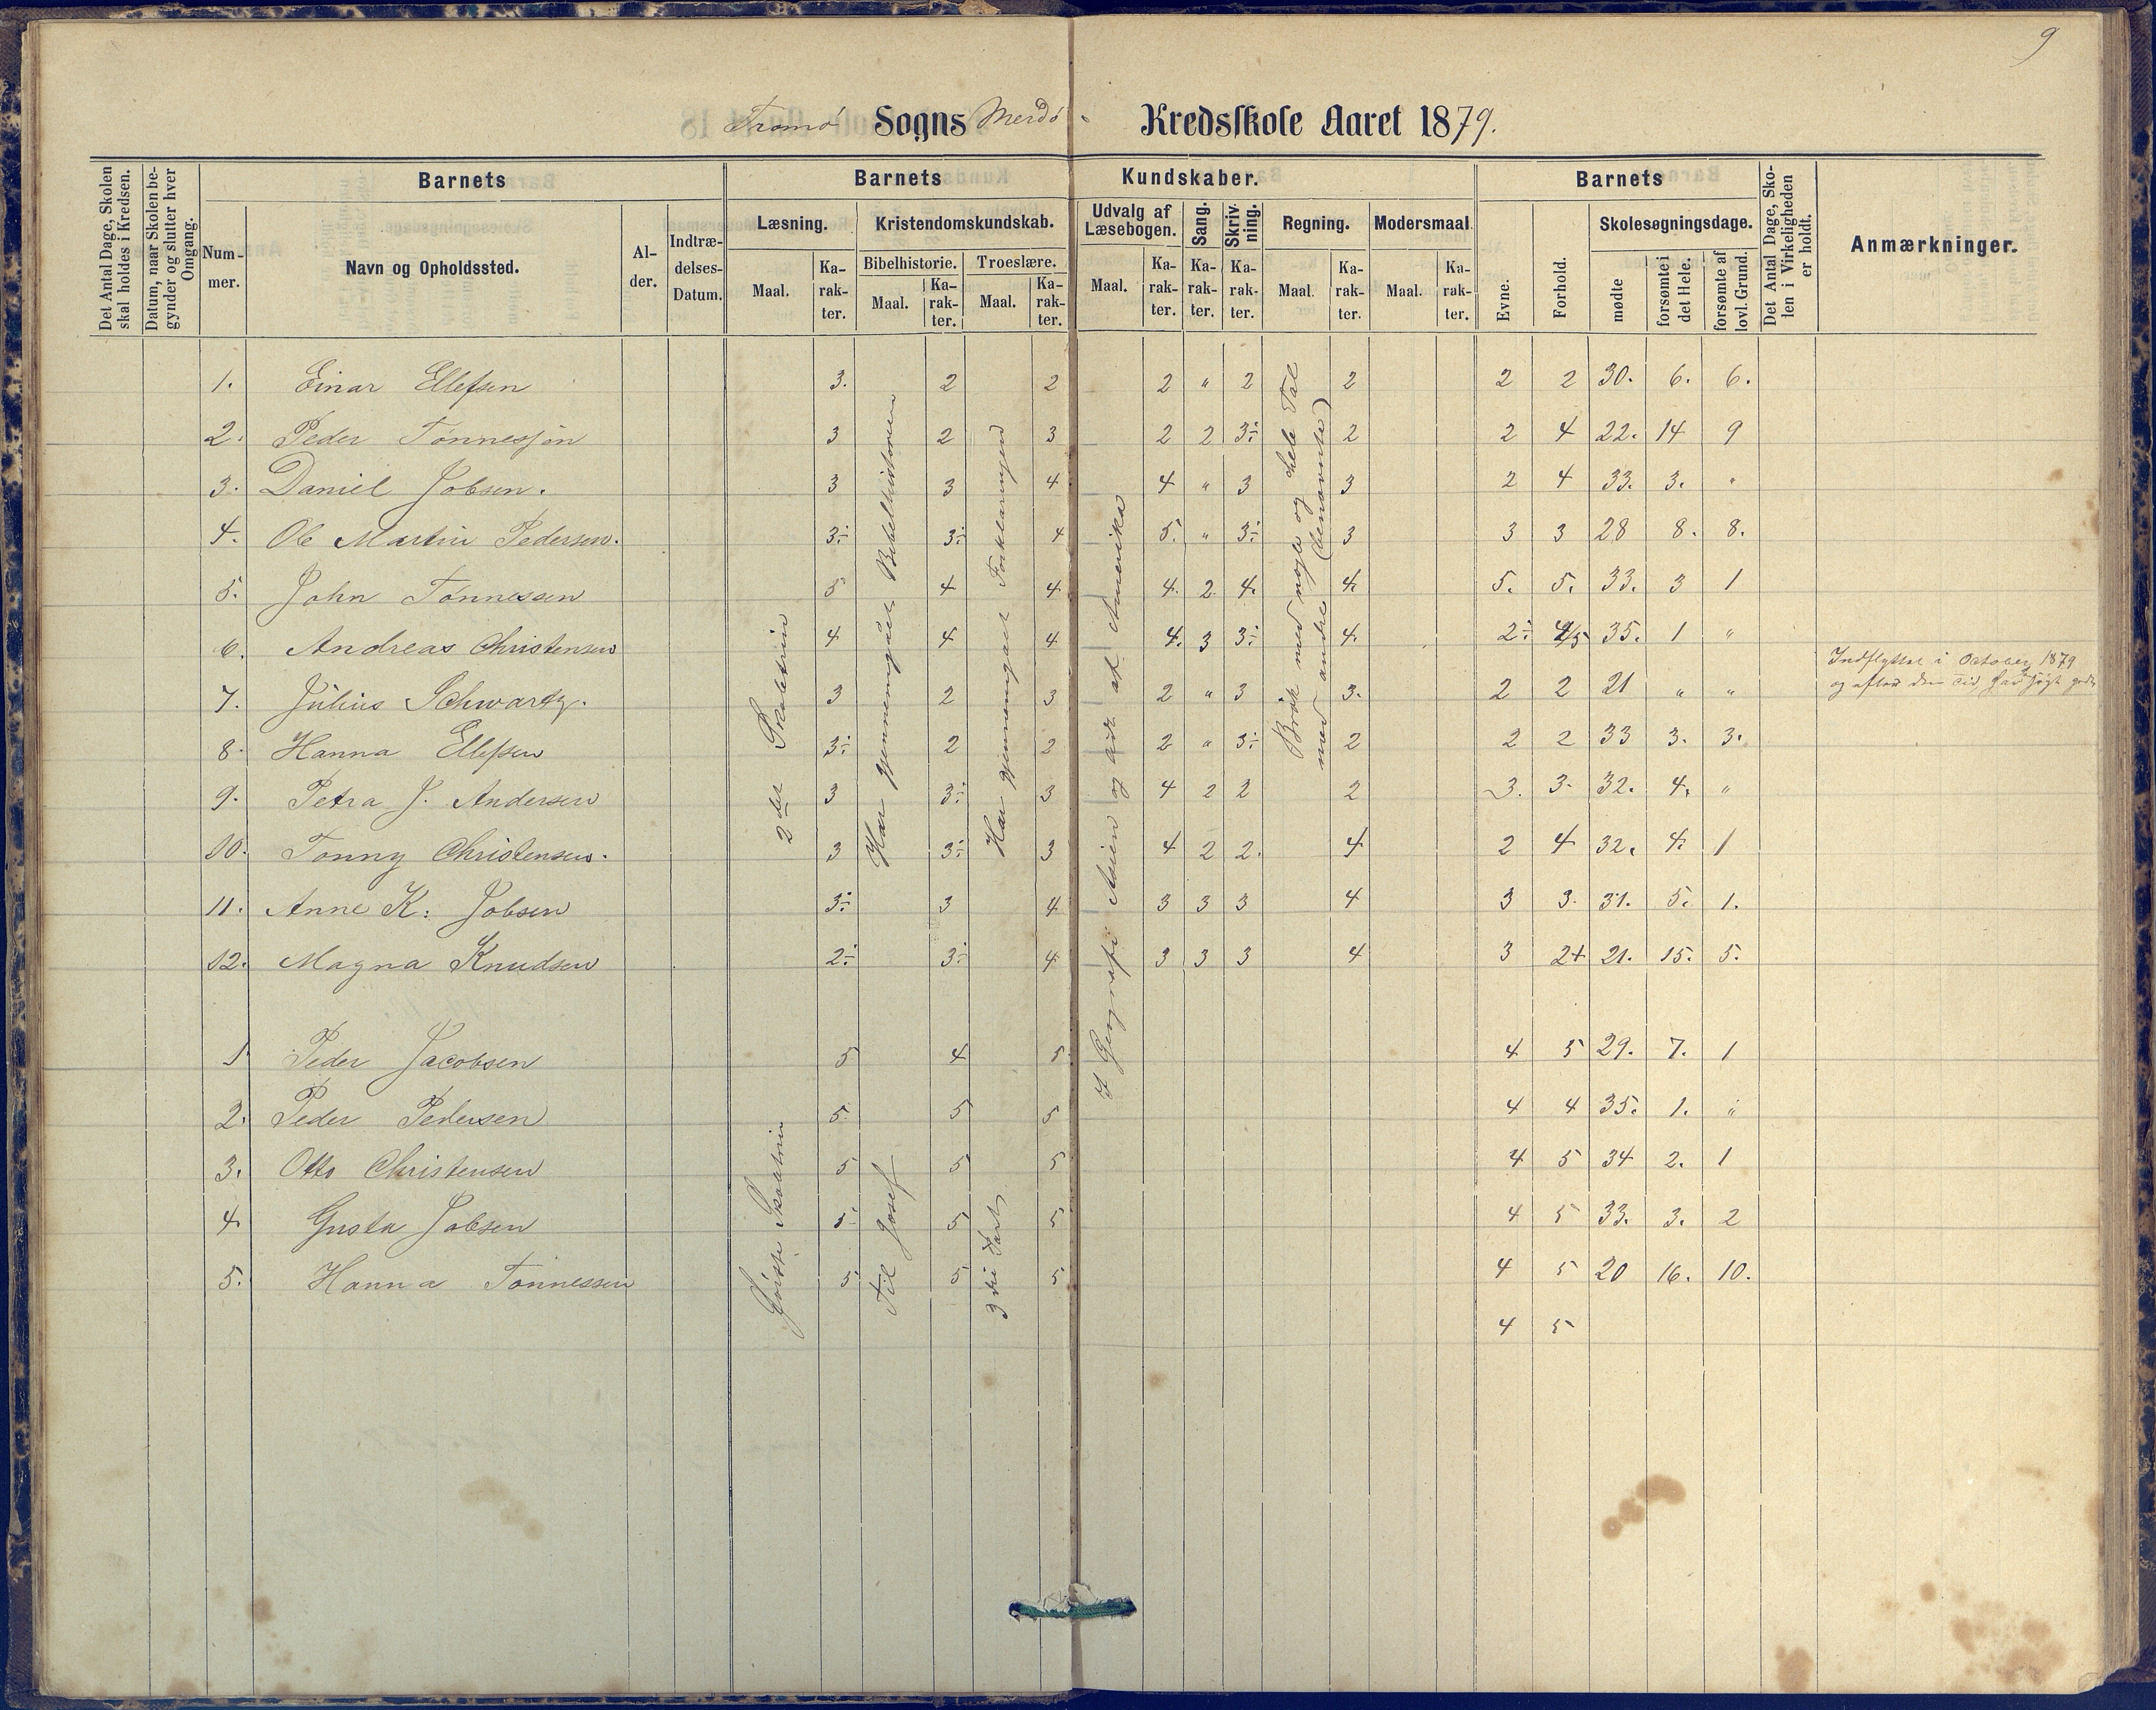 9
Tromø Sogns Merdø Kredsskole Aaret 1879.
Det Antal Dage, Skolen skal holdes i Kredsen.
Datum, naar Skolen begynder og slutter hver Omgang.
Barnets
Nummer.
Navn og Opholdssted.
Alder.
Indtrædelses-Datum.
Barnets Kundskaber.
Læsning.
Maal.
Karakter.
Kristendomskundskab.
Bibelhistorie.
Maal.
Karakter.
Troeslære.
Maal.
Karakter.
Udvalg af Læsebogen.
Maal.
Karakter.
Sang.
Karakter.
Skrivning.
Karakter.
Regning.
Maal.
Karakter.
Modersmaal
Maal.
Karakter.
Barnets
Evne.
Forhold.
Skolesøgningsdage.
mødte
forsømte i det Hele.
forsømte af lovl. Grund.
Det Antal Dage, Skolen i Virkeligheden er holdt.
Anmærkninger.
1. Einar Ellefsen 3. 2 2 2 " 2 2 2 2 30. 6. 6.
2. Peder Tønnessøn 3 2 3 2 2 3÷ 2 2 4 22. 14 9
3. Daniel Jobsen. 3 3 4 4 " 3 3 2 4 33. 3. "
4. Ole Martin Pedersen. 3÷ 3÷ 4 5. " 3÷ 3 3 3 28 8. 8.
5. John Tønnessen 5 4 4 4. 2 4. 4. 5. 5. 33. 3 1
6. Andreas Christensen 4 4 4 4. 3 3÷ 4. 2÷ 4/5 35. 1 "
7. Julius Schwartz. 3 2 3 2 " 3 3. 2 2 21 " " Indflyttet i October 1879
og efter den Tid har søgt godt
8. Hanna Ellefsen 3÷ 2 2 2 " 3÷ 2 2 2 33 3. 3.
9. Petra J. Andersen 3 3÷ 3 4 2 2 2 3. 3. 32. 4. "
10. Tonny Christensen. 3 3÷ 3 4 2 2. 4 2 4 32. 4. 1
11. Anne K: Jobsen 3÷ 3 4 3 3 3 4 3 3. 31. 5. 1.
12. Magna Knudsen 2÷ 3÷ 4 3 3 3 4 3 2+ 21. 15. 5.
2det Skoletrin
Har gjennemgaaet Bibelhistorien
Har gjennemgaaet Forklaringen
I Geografi Asien og lidt af Amerika
Brøk med nogle og hele Tal
med andre (benævnte)
1 Peder Jacobsen 5 4 5 4 5 29. 7. 1
2. Peder Pedersen 5 5 5 4 4 35. 1. "
3. Otto Christensen 5 5 5 4 5 34 2. 1
4 Gusta Jobsen 5 5 5 4 5 33. 3. 2
5. Hanna Tønnessen 5 5 5 4 5 20 16. 10.
4 5
Første Skoletrin
Til Josef
3die Part